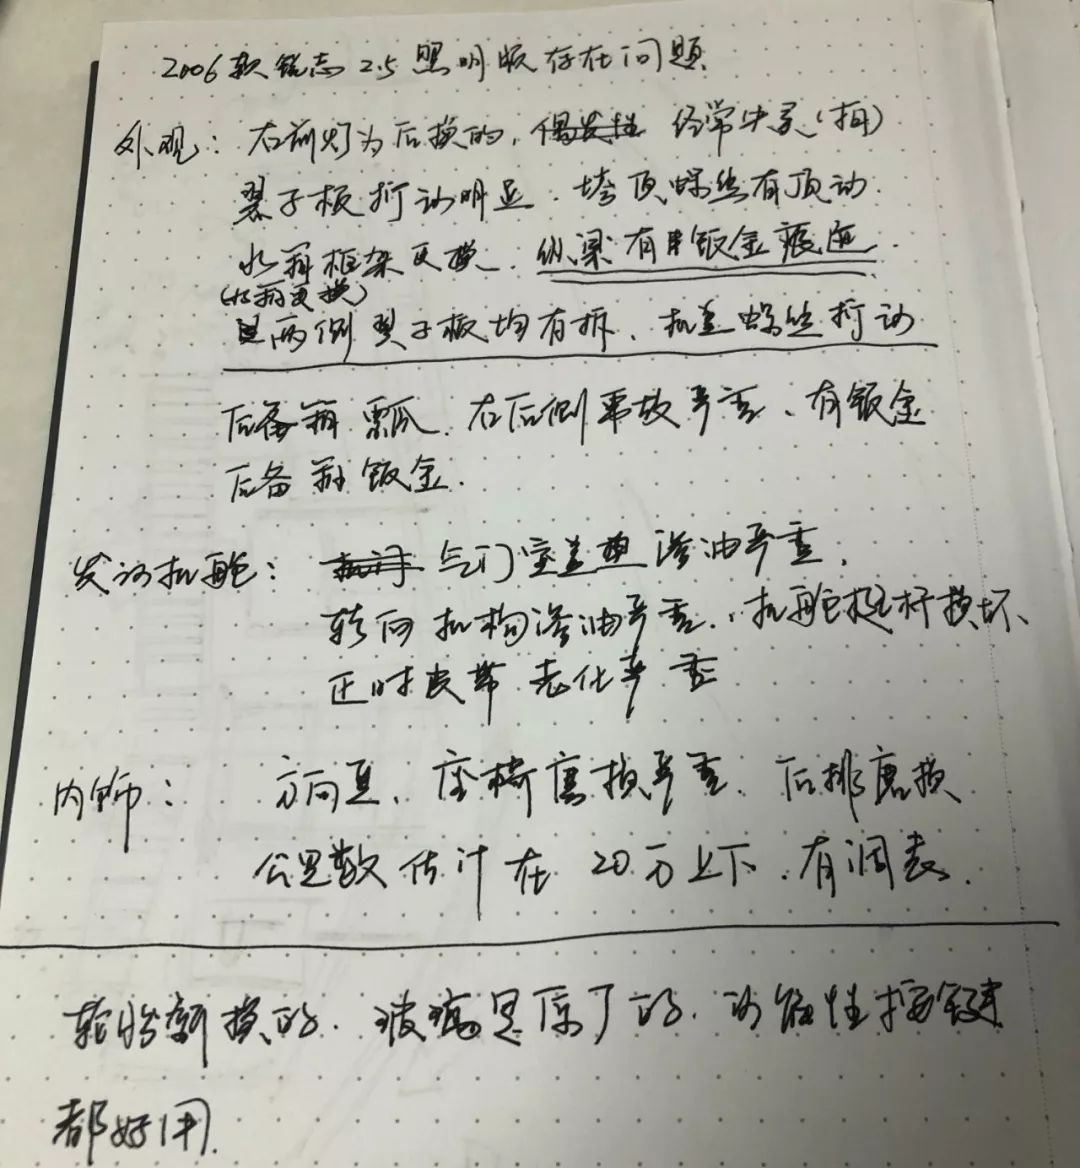 2006款锐志2.5照明版存在问题
外观：右前灯为后换的，偶发性 经常失灵（拍）
翼子板拧动明显．垮顶螺丝有顶动．
水箱框架更换．纵梁有钣金痕迹．
（水箱更换）
且两侧翼子板均有拆、机盖螺丝拧动
后备箱 瓢．右后侧事故严重、有钣金
后备箱钣金．
发动机舱：气门室盖 渗油严重，
转向机构渗油严重．机舱挺杆损坏、
正时皮带 老化严重
内饰：方向盘、座椅磨损严重、后排磨损
公里数估计在20万上下．有调表．
轮胎新换的．玻璃是原厂的．功能性按键
都好用．